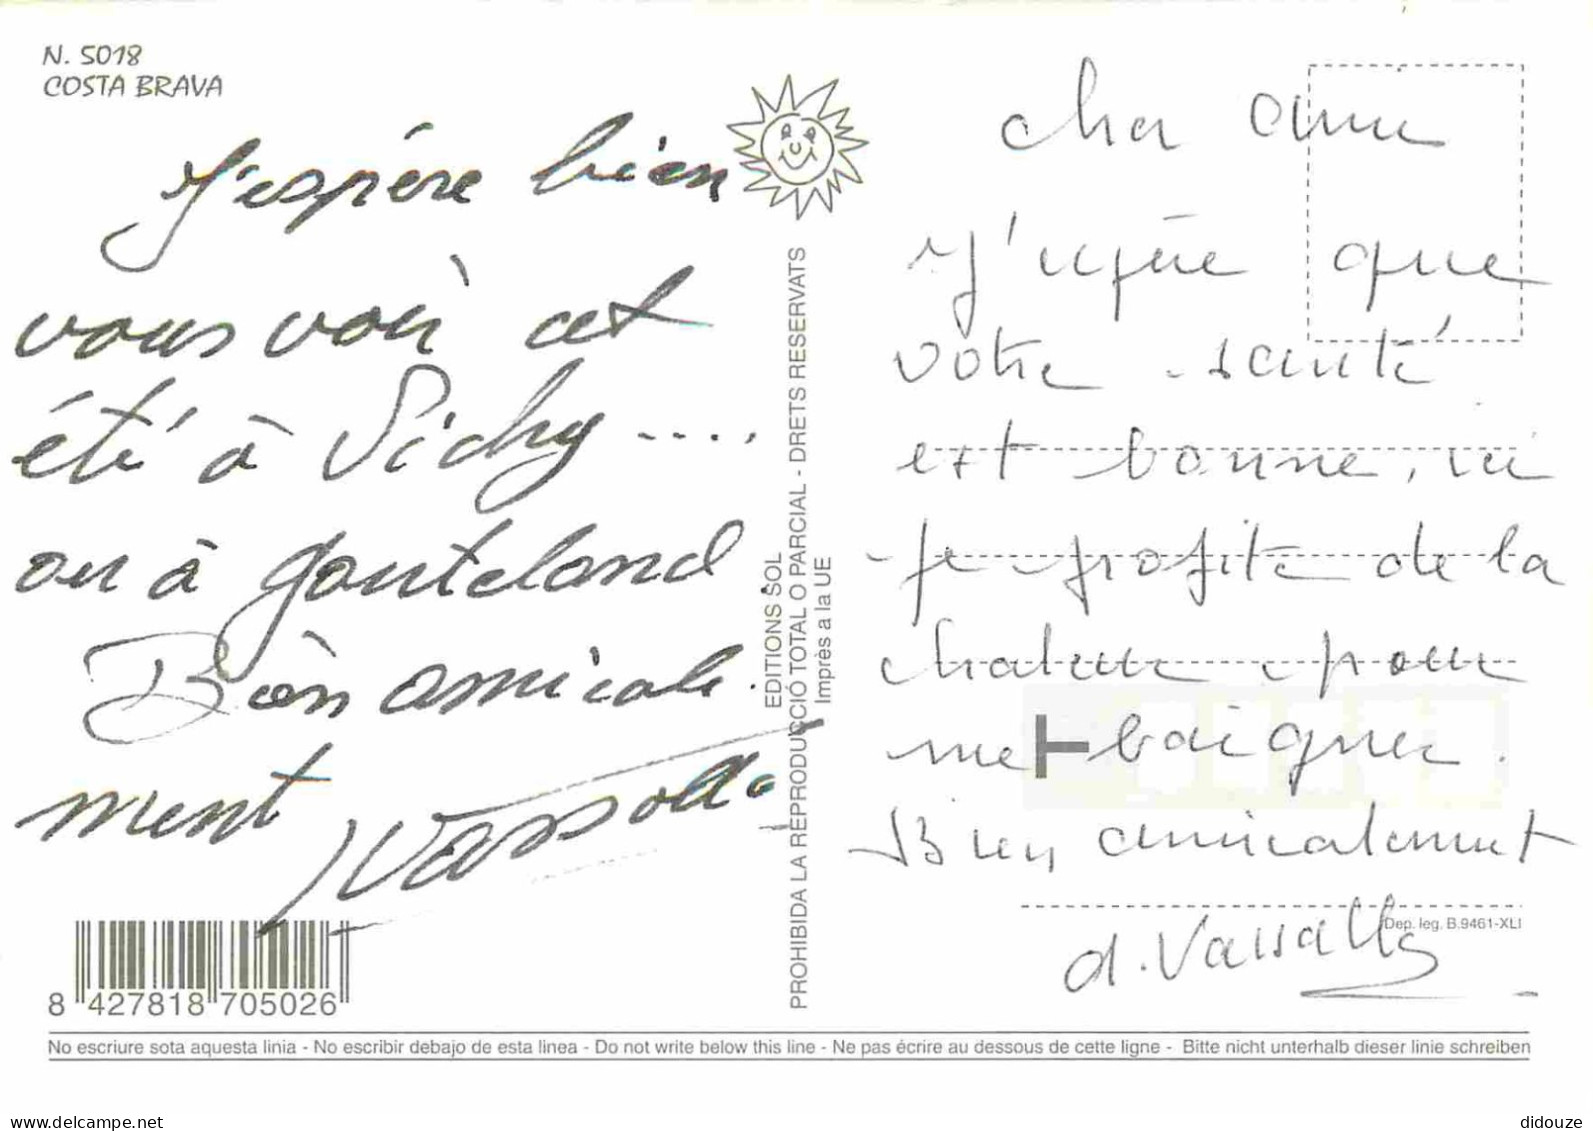 N. 5018
COSTA BRAVA
J'espère bien
vous voir cet
été à Vichy ....
ou à
Bien amicale
ment
Vassallo
8 427818 705026
EDITIONS SOL
PROHIBIDA LA REPRODUCCIÓ TOTAL O PARCIAL - DRETS RESERVATS
Imprès a la UE
cher ami
J'espère que
votre santé
est bonne, ici
je profite de la
chaleur pour
me baigner.
Bien amicalement
d. Vassallo
Dep. leg. B.9461-XLI
No escriure sota aquesta linia - No escribir debajo de esta linea - Do not write below this line - Ne pas écrire au dessous de cette ligne - Bitte nicht unterhalb dieser linie schreiben
www.delcampe.net
didouze